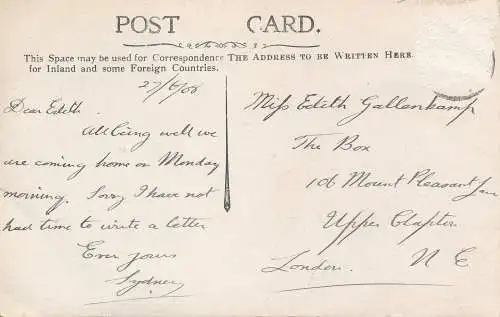 POST CARD.
This Space may be used for Correspondence
for Inland and some Foreign Countries.
THE ADDRESS TO BE WRITTEN HERE.
27/6/06
Dear Edith.
All being well we
are coming home on Monday
morning. Sorry I have not
had time to write a letter
Ever yours
Sydney
Miss Edith Gallenkamp
The Box
106 Mount Pleasant Lane
Upper Clapton
London. N E